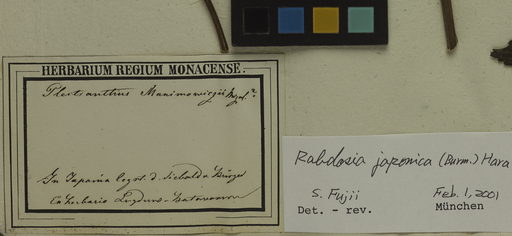 HERBARIUM REGIUM MONACENSE.
Plectranthus Maximowiczii Miq.
In Japonia legit d. Siebold & Bürger
Ex herbario Lugduno-Batavorum
Rabdosia japonica (Burm.) Hara
S. Fujii Feb. 1, 2001
Det. - rev. München